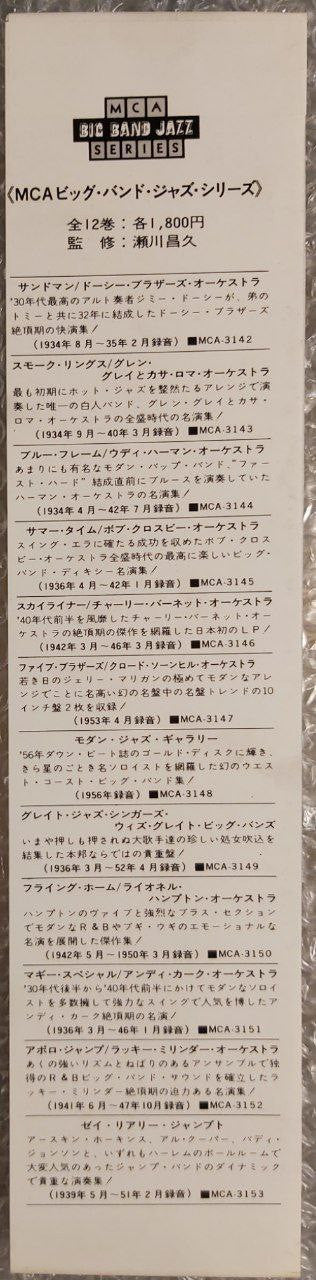 MCA
BIG BAND JAZZ
SERIES
《MCAビッグ・バンド・ジャズ・シリーズ》
全12巻：各1,800円
監　修：瀬川昌久
サンドマン/ドーシー・ブラザーズ・オーケストラ
'30年代最高のアルト奏者ジミー・ドーシーが、弟の
トミーと共に32年に結成したドーシー・ブラザーズ
絶頂期の快演集！
(1934年8月〜35年2月録音) ■MCA-3142
スモーク・リングス/グレン・
グレイとカサ・ロマ・オーケストラ
最も初期にホット・ジャズを整然たるアレンジで演
奏した唯一の白人バンド、グレン・グレイとカサ・
ロマ・オーケストラの全盛時代の名演集！
(1934年9月〜40年3月録音) ■MCA-3143
ブルー・フレーム/ウディ・ハーマン・オーケストラ
あまりにも有名なモダン・バップ・バンド、“ファー
スト・ハード”結成直前にブルースを演奏していた
ハーマン・オーケストラの名演集！
(1934年4月〜42年7月録音) ■MCA-3144
サマー・タイム/ボブ・クロスビー・オーケストラ
スイング・エラに確たる成功を収めたボブ・クロス
ビー・オーケストラ全盛時代の最高に楽しいビッグ・
バンド・ディキシー名演集！
(1936年4月〜42年1月録音) ■MCA-3145
スカイライナー/チャーリー・バーネット・オーケストラ
'40年代前半を風靡したチャーリー・バーネット・オー
ケストラの絶頂期の傑作を網羅した日本初のLP！
(1942年3月〜46年3月録音) ■MCA-3146
ファイブ・ブラザーズ/クロード・ソーンヒル・オーケストラ
若き日のジェリー・マリガンの極めてモダンなアレ
ンジでことに名高い幻の名盤中の名盤トレンドの10イ
ンチ盤2枚を収録！
(1953年4月録音) ■MCA-3147
モダン・ジャズ・ギャラリー
'56年ダウン・ビート誌のゴールド・ディスクに輝き、
きら星のごとき名ソロイストを網羅した幻のウエス
ト・コースト・ビッグ・バンド集！
(1956年録音) ■MCA-3148
グレイト・ジャズ・シンガーズ・
ウィズ・グレイト・ビッグ・バンズ
いまや押しも押されぬ大歌手達の珍しい処女吹込を
結集した本邦ならではの貴重盤！
(1936年3月〜52年4月録音) ■MCA-3149
フライング・ホーム/ライオネル・
ハンプトン・オーケストラ
ハンプトンのヴァイブと強烈なブラス・セクション
でモダンなR&Bやブギ・ウギのエモーショナルな
名演を展開した傑作集！
(1942年5月〜1950年3月録音) ■MCA-3150
マギー・スペシャル/アンディ・カーク・オーケストラ
'30年代後半から'40年代前半にかけてモダンなソロイ
ストを多数擁して強力なスイングで人気を博したア
ンディ・カーク絶頂期の名演！
(1936年3月〜46年1月録音) ■MCA-3151
アポロ・ジャンプ/ラッキー・ミリンダー・オーケストラ
あくの強いリズムとねばりのあるアンサンブルで独
得のR&Bビッグ・バンド・サウンドを確立したラ
ッキー・ミリンダー絶頂期の迫力ある名演集！
(1941年6月〜47年10月録音) ■MCA-3152
ゼイ・リアリー・ジャンプト
アースキン・ホーキンス、アル・クーパー、バディ・
ジョンソンと、いずれもハーレムのボールルームで
大変人気のあったジャンプ・バンドのダイナミック
で貴重な演奏集！
(1939年5月〜51年2月録音) ■MCA-3153